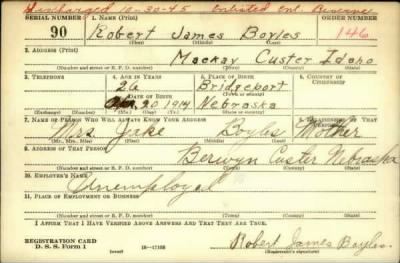 Discharged 10-30-45 Enlisted Enl. Reserve
SERIAL NUMBER 1. NAME (Print) ORDER NUMBER
90 Robert James Boyles 146
(First) (Middle) (Last)
2. ADDRESS (Print)
Mackay Custer Idaho
(Number and street or R. F. D. number) (Town) (County) (State)
3. TELEPHONE 4. AGE IN YEARS 5. PLACE OF BIRTH 6. COUNTRY OF CITIZENSHIP
26 Bridgeport
DATE OF BIRTH (Town or county)
20 1914 Nebraska
(Exchange) (Number) (Mo.) (Day) (Yr.) (State or country)
7. NAME OF PERSON WHO WILL ALWAYS KNOW YOUR ADDRESS 8. RELATIONSHIP OF THAT PERSON
Mrs. Jake Boyles Mother
(Mr., Mrs., Miss) (First) (Middle) (Last)
9. ADDRESS OF THAT PERSON
Berwyn Custer Nebraska
(Number and street or R. F. D. number) (Town) (County) (State)
10. EMPLOYER'S NAME
Unemployed
11. PLACE OF EMPLOYMENT OR BUSINESS
(Number and street or R. F. D. number) (Town) (County) (State)
I AFFIRM THAT I HAVE VERIFIED ABOVE ANSWERS AND THAT THEY ARE TRUE.
REGISTRATION CARD
D. S. S. Form 1 (over) 16-17105 Robert James Boyles